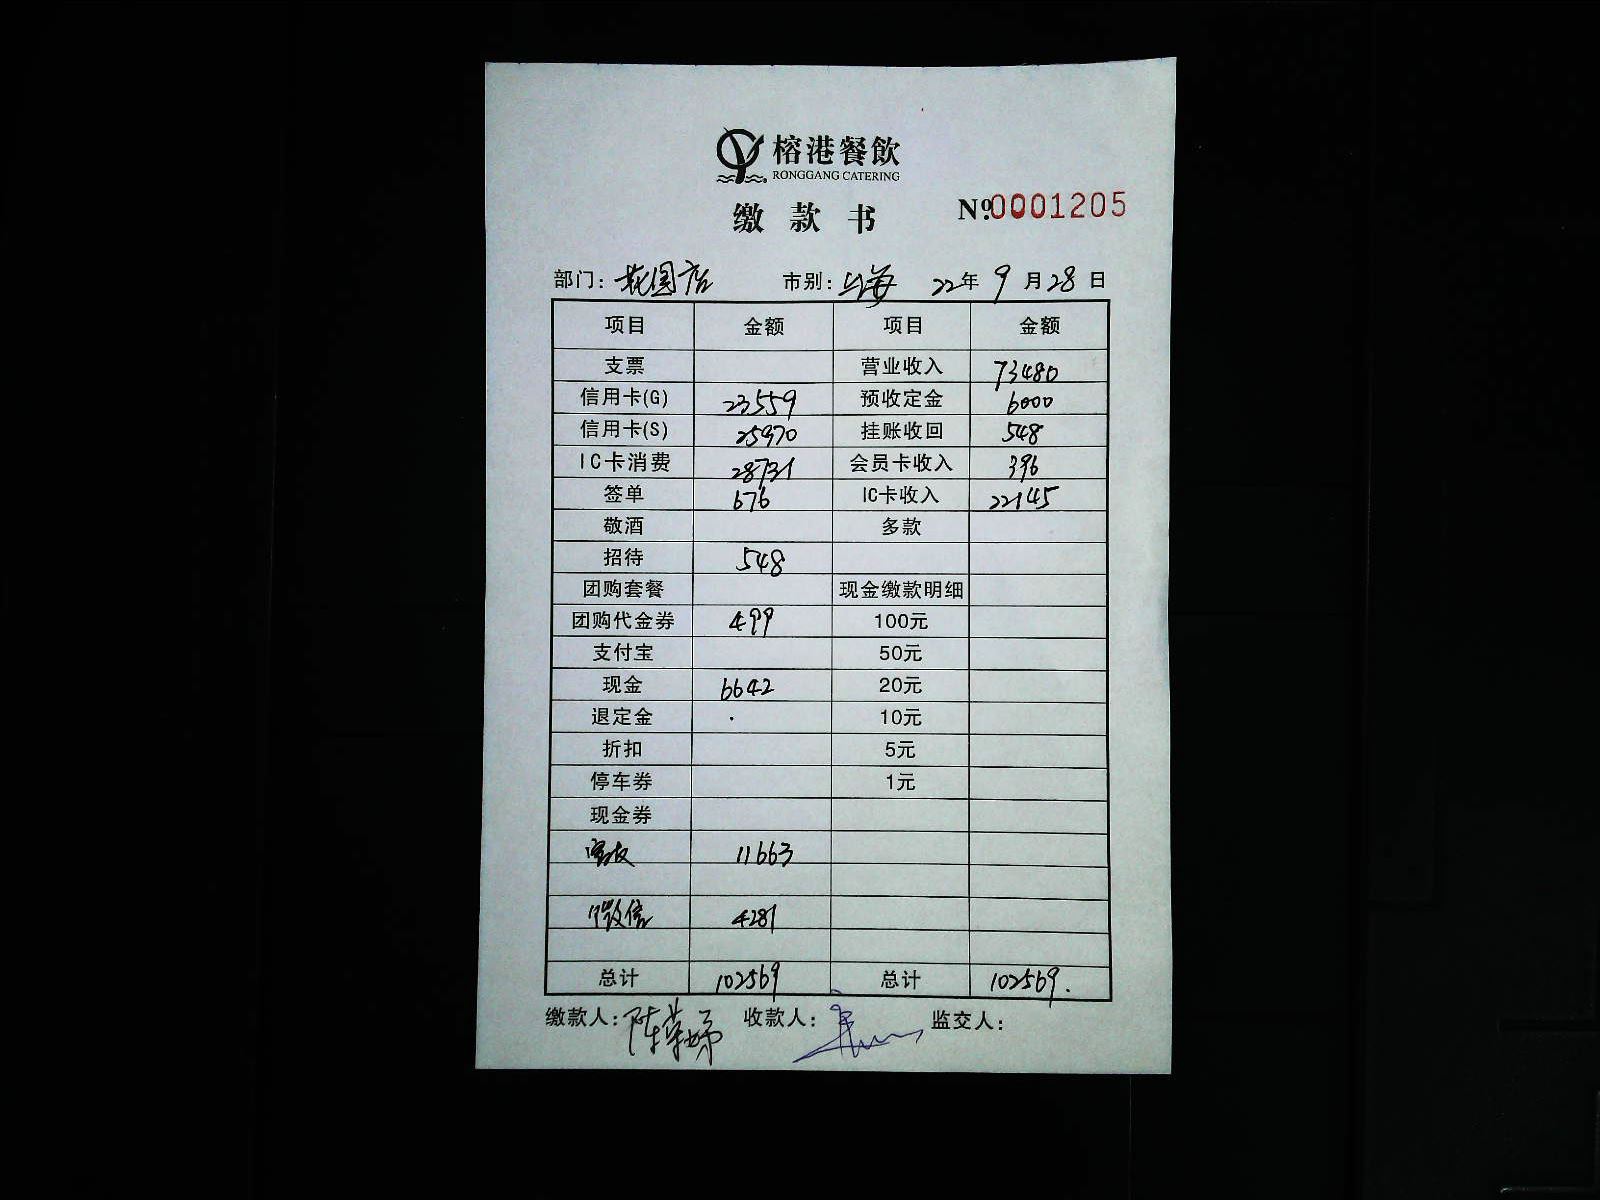 榕港餐飲
RONGGANG CATERING
缴款书 Nº0001205
部门：花园店 市别：上海 22年9月28日
项目 金额 项目 金额
支票 营业收入 73480
信用卡(G) 23559 预收定金 6000
信用卡(S) 25970 挂账收回 548
IC卡消费 28731 会员卡收入 396
签单 676 IC卡收入 22145
敬酒 多款
招待 548
团购套餐 现金缴款明细
团购代金券 499 100元
支付宝 50元
现金 6642 20元
退定金 10元
折扣 5元
停车券 1元
现金券
11663
微信 4281
总计 102569 总计 102569.
缴款人：陈荣娣 收款人： 监交人：